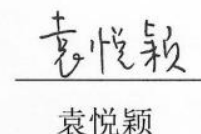 袁悦颖
袁悦颖